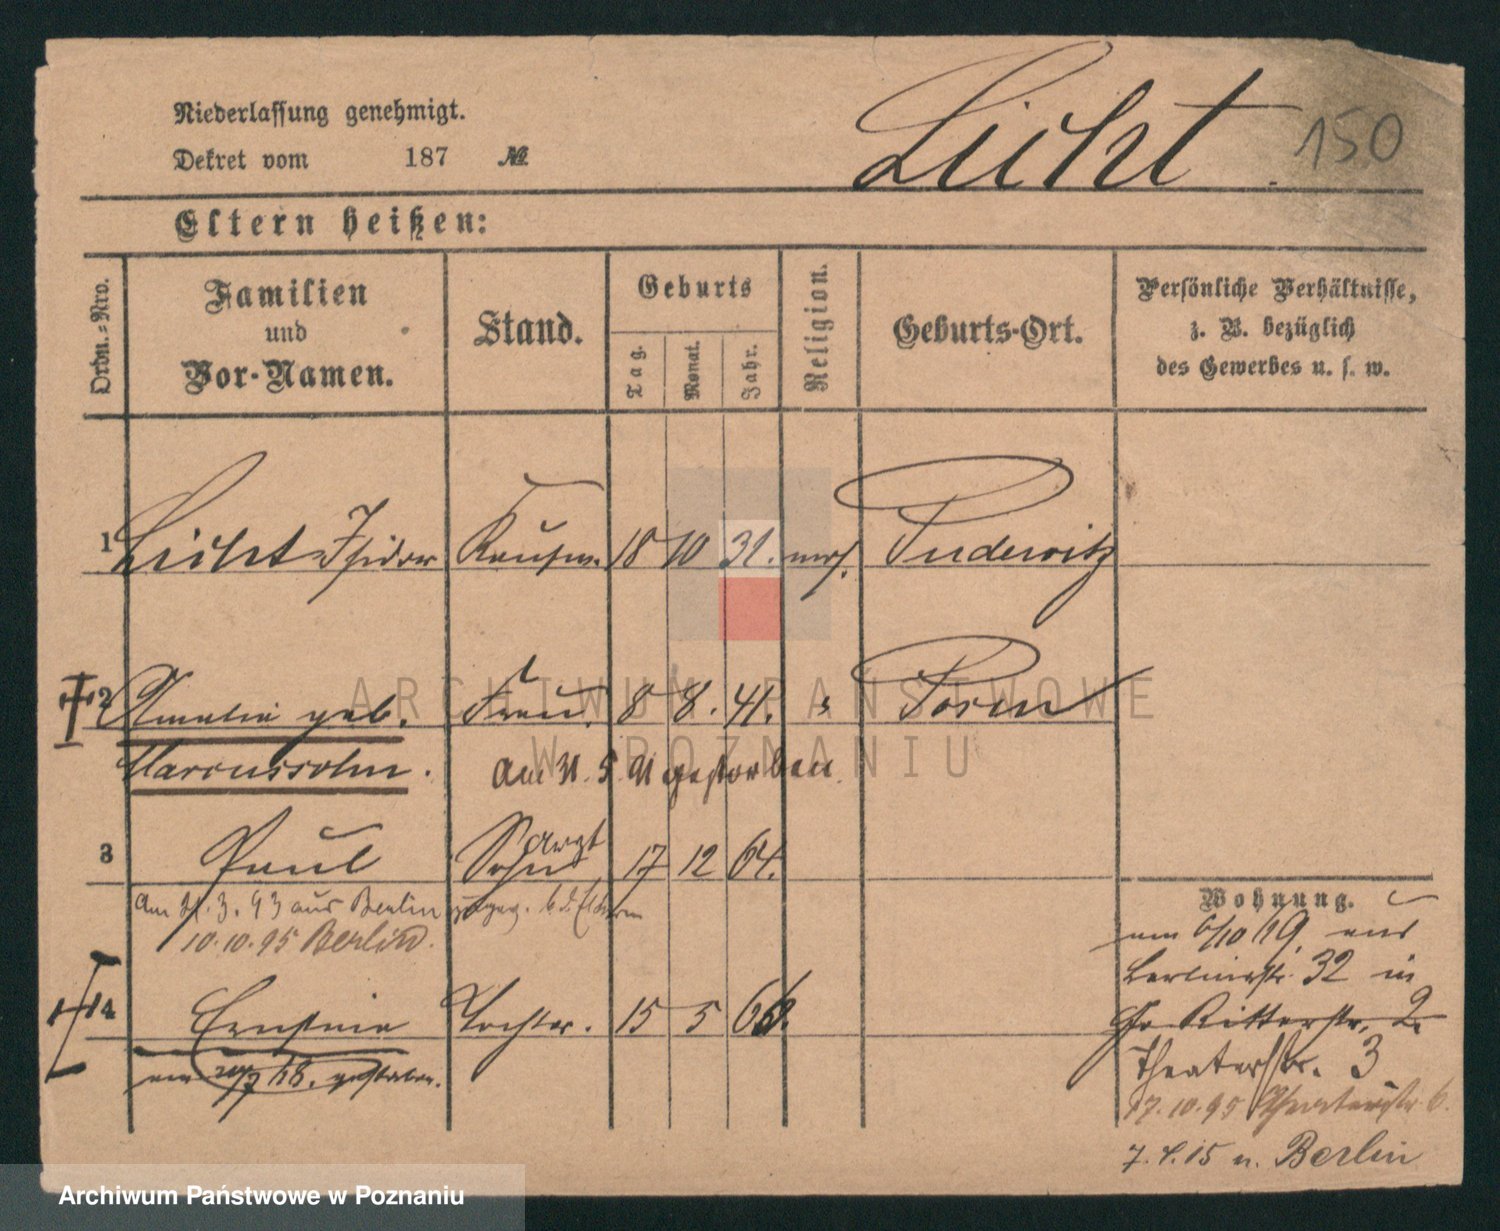 Niederlassung genehmigt.
Dekret vom 187 №
Licht
150
Eltern heißen:
Ordn.-Nro.
Familien
und
Vor-Namen.
Stand.
Geburts
Tag.
Monat.
Jahr.
Religion.
Geburts-Ort.
Persönliche Verhältnisse,
z. B. bezüglich
des Gewerbes u. s. w.
1 Licht Isidor Kaufm. 18 10 31. mos. Pudewitz
2 Amalie geb. Frau. 8 8. 41. Posen
Marcussohn. am 31. 5. 91 gestorben.
3 Paul Sohn Arzt 17 12 64.
am 21. 3. 93 aus Berlin zugez. b. d. Eltern
10. 10. 95 Berlin.
4 Ernstine Tochter. 15 5 66.
am gestorben.
Wohnung.
am 6/10 79. aus
Berlinerstr. 32 in
Gr Ritterstr. 2.
Theaterstr. 3
17. 10. 95 Theaterstr. 6.
7. 4. 15 n. Berlin
ARCHIWUM PAŃSTWOWE
W POZNANIU
Archiwum Państwowe w Poznaniu